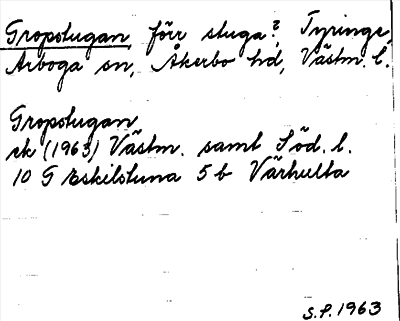 Gropstugan, förr stuga?, Tyringe,
Arboga sn, Åkerbo hd, Västm. l.
Gropstugan
rk (1963) Västm. samt Söd. l.
10 G Eskilstuna 5 b Värhulta
S.P. 1963